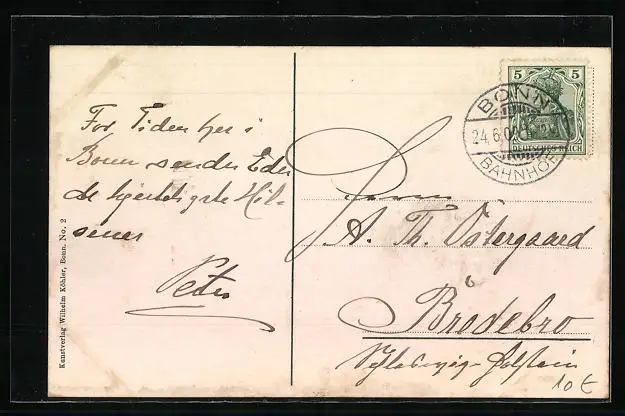 For Tiden her i
Bonn sender Eder
de hjerteligste Hil-
sener
Peter
Kunstverlag Wilhelm Köhler, Bonn. No. 2
5 5
DEUTSCHES REICH
BONN
24.6.
BAHNHOF
Herrn
A. Th. Östergaard
Bredebro
Schleswig-Holstein
10 €